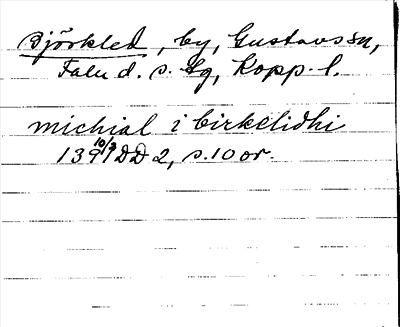 Björkled, by, Gustavs sn,
Falu d. s. lg, Kopp. l.
michial i birkelidhi
1391 10/3 DD 2, s. 10 or.